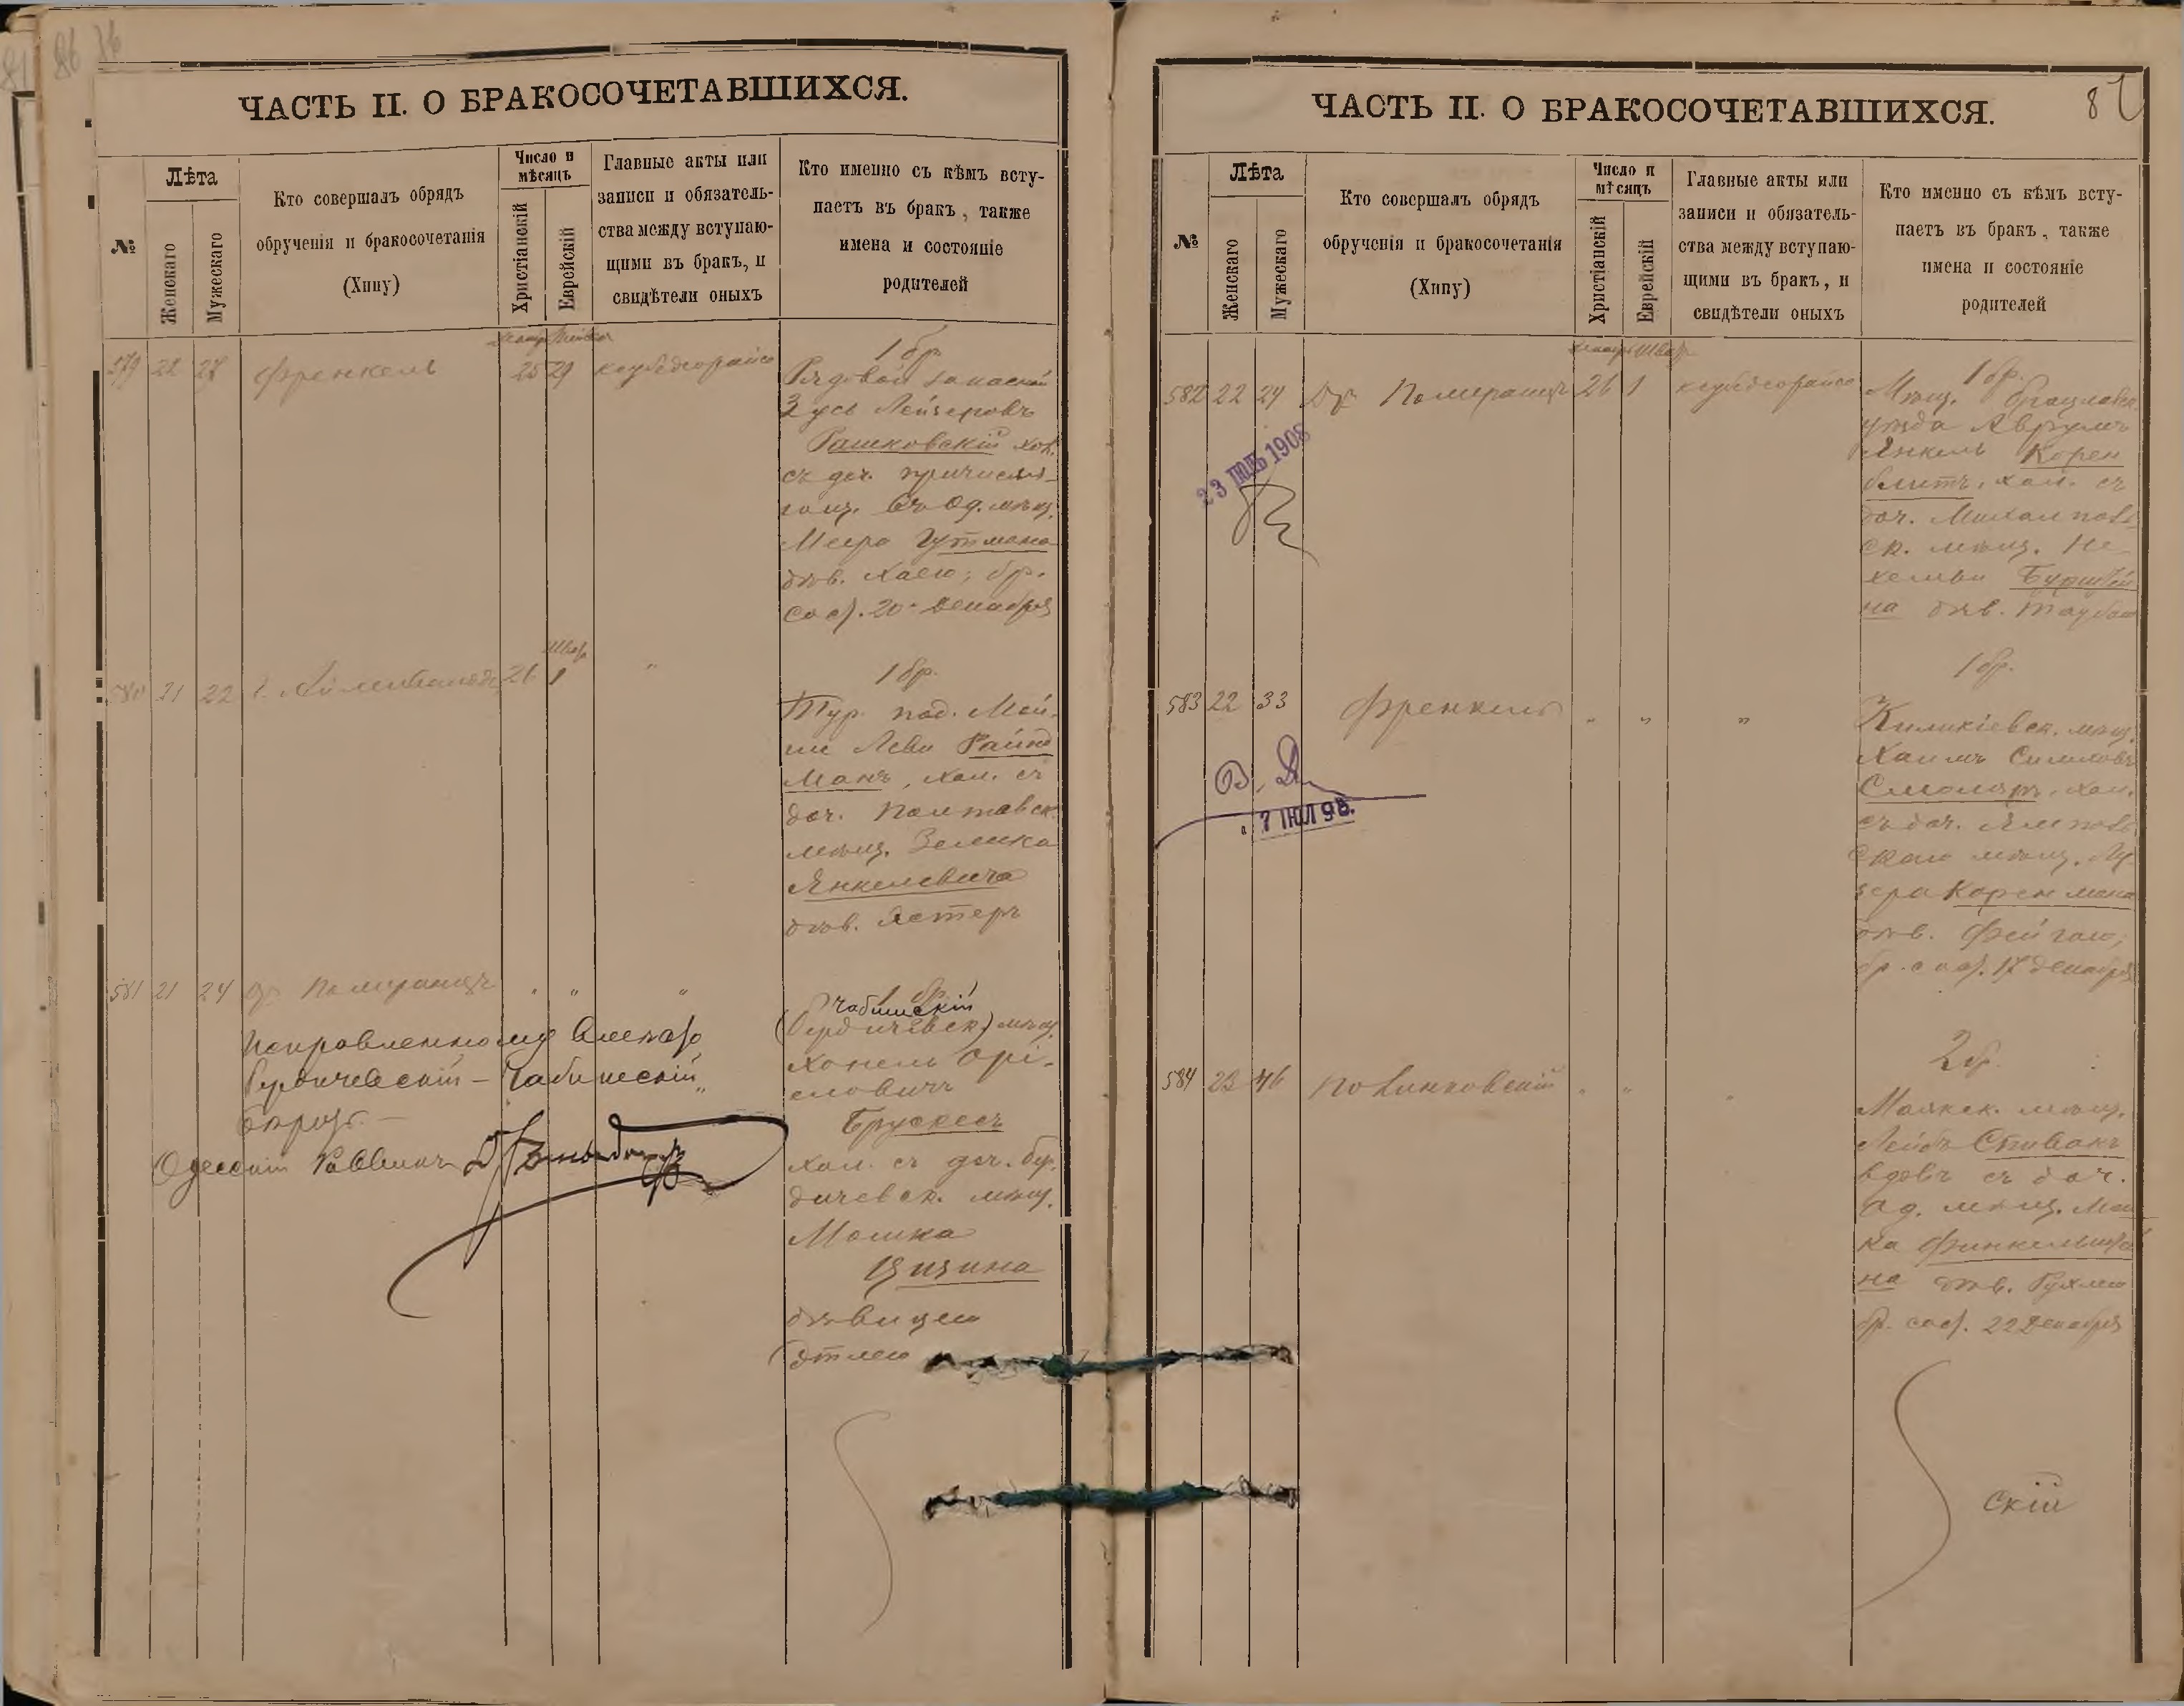 86
ЧАСТЬ II. О БРАКОСОЧЕТАВШИХСЯ.
№
Лѣта
Женскаго
Мужескаго
Кто совершалъ обрядъ
обрученія и бракосочетанія
(Хипу)
Число и
мѣсяцъ
Христіанскій
Еврейскій
Главные акты или
записи и обязатель-
ства между вступаю-
щими въ бракъ, и
свидѣтели оныхъ
Кто именно съ кѣмъ всту-
паетъ въ бракъ, также
имена и состояніе
родителей
579 22 28 Френкель 25 29
1 бр.
Рядовой запасной
Зусь Лейзеровъ
Рашковскій хол.
съ доч.
Од. мѣщ.
Меера Гутмана
дѣв. Хаею; бр.
сос. 20 декабря
580 21 22 26 1 "
1 бр.
Тур. под. Мой-
ше Леви Райнд
манъ, хол. съ
доч. Полтавск.
мѣщ. Зелика
Янкелевича
дѣв. Эстеръ
581 21 24 Др Померанцъ " " "
1 бр.
Чабинскій
(Бердичевск) мѣщ.
Хонель Орі-
еловичъ
Брускесъ
хол. съ доч. бер-
дичевск. мѣщ.
Мошка
Цизина
дѣвицею
Этлею
Поправленному вмѣсто
Бердичевскій – Чабинескій
вѣрую.
Одесскій Раввинъ
87
ЧАСТЬ II. О БРАКОСОЧЕТАВШИХСЯ.
№
Лѣта
Женскаго
Мужескаго
Кто совершалъ обрядъ
обрученія и бракосочетанія
(Хипу)
Число и
мѣсяцъ
Христіанскій
Еврейскій
Главные акты или
записи и обязатель-
ства между вступаю-
щими въ бракъ, и
свидѣтели оныхъ
Кто именно съ кѣмъ всту-
паетъ въ бракъ, также
имена и состояніе
родителей
582 22 24 Др Померанцъ 26 1
1 бр.
Мѣщ. Брацлавск.
уѣзда Аврумъ
Янкель Корен
блитъ, хол. съ
доч. Михалповс
ск. мѣщ. Не-
хемьи
на дѣв. Таубою
23 ІЮЛЬ 1908
583 22 33 Френкель " " "
1 бр.
мѣщ.
Хаимъ Симховъ
Смоляръ, хол.
съ доч.
скаго мѣщ. Лу-
зера Коренмана
дѣв. Фейгою;
бр. сос. 17 декабря
7 ІЮЛ 98.
584 23 46 Поханковскій " " "
2 бр.
Маякск. мѣщ.
Лейбъ Спивакъ
вдовъ съ доч.
Од. мѣщ. Мош
ка Финкельштей
на дѣв. Рухлею
бр. сос. 22 Декабря
скій